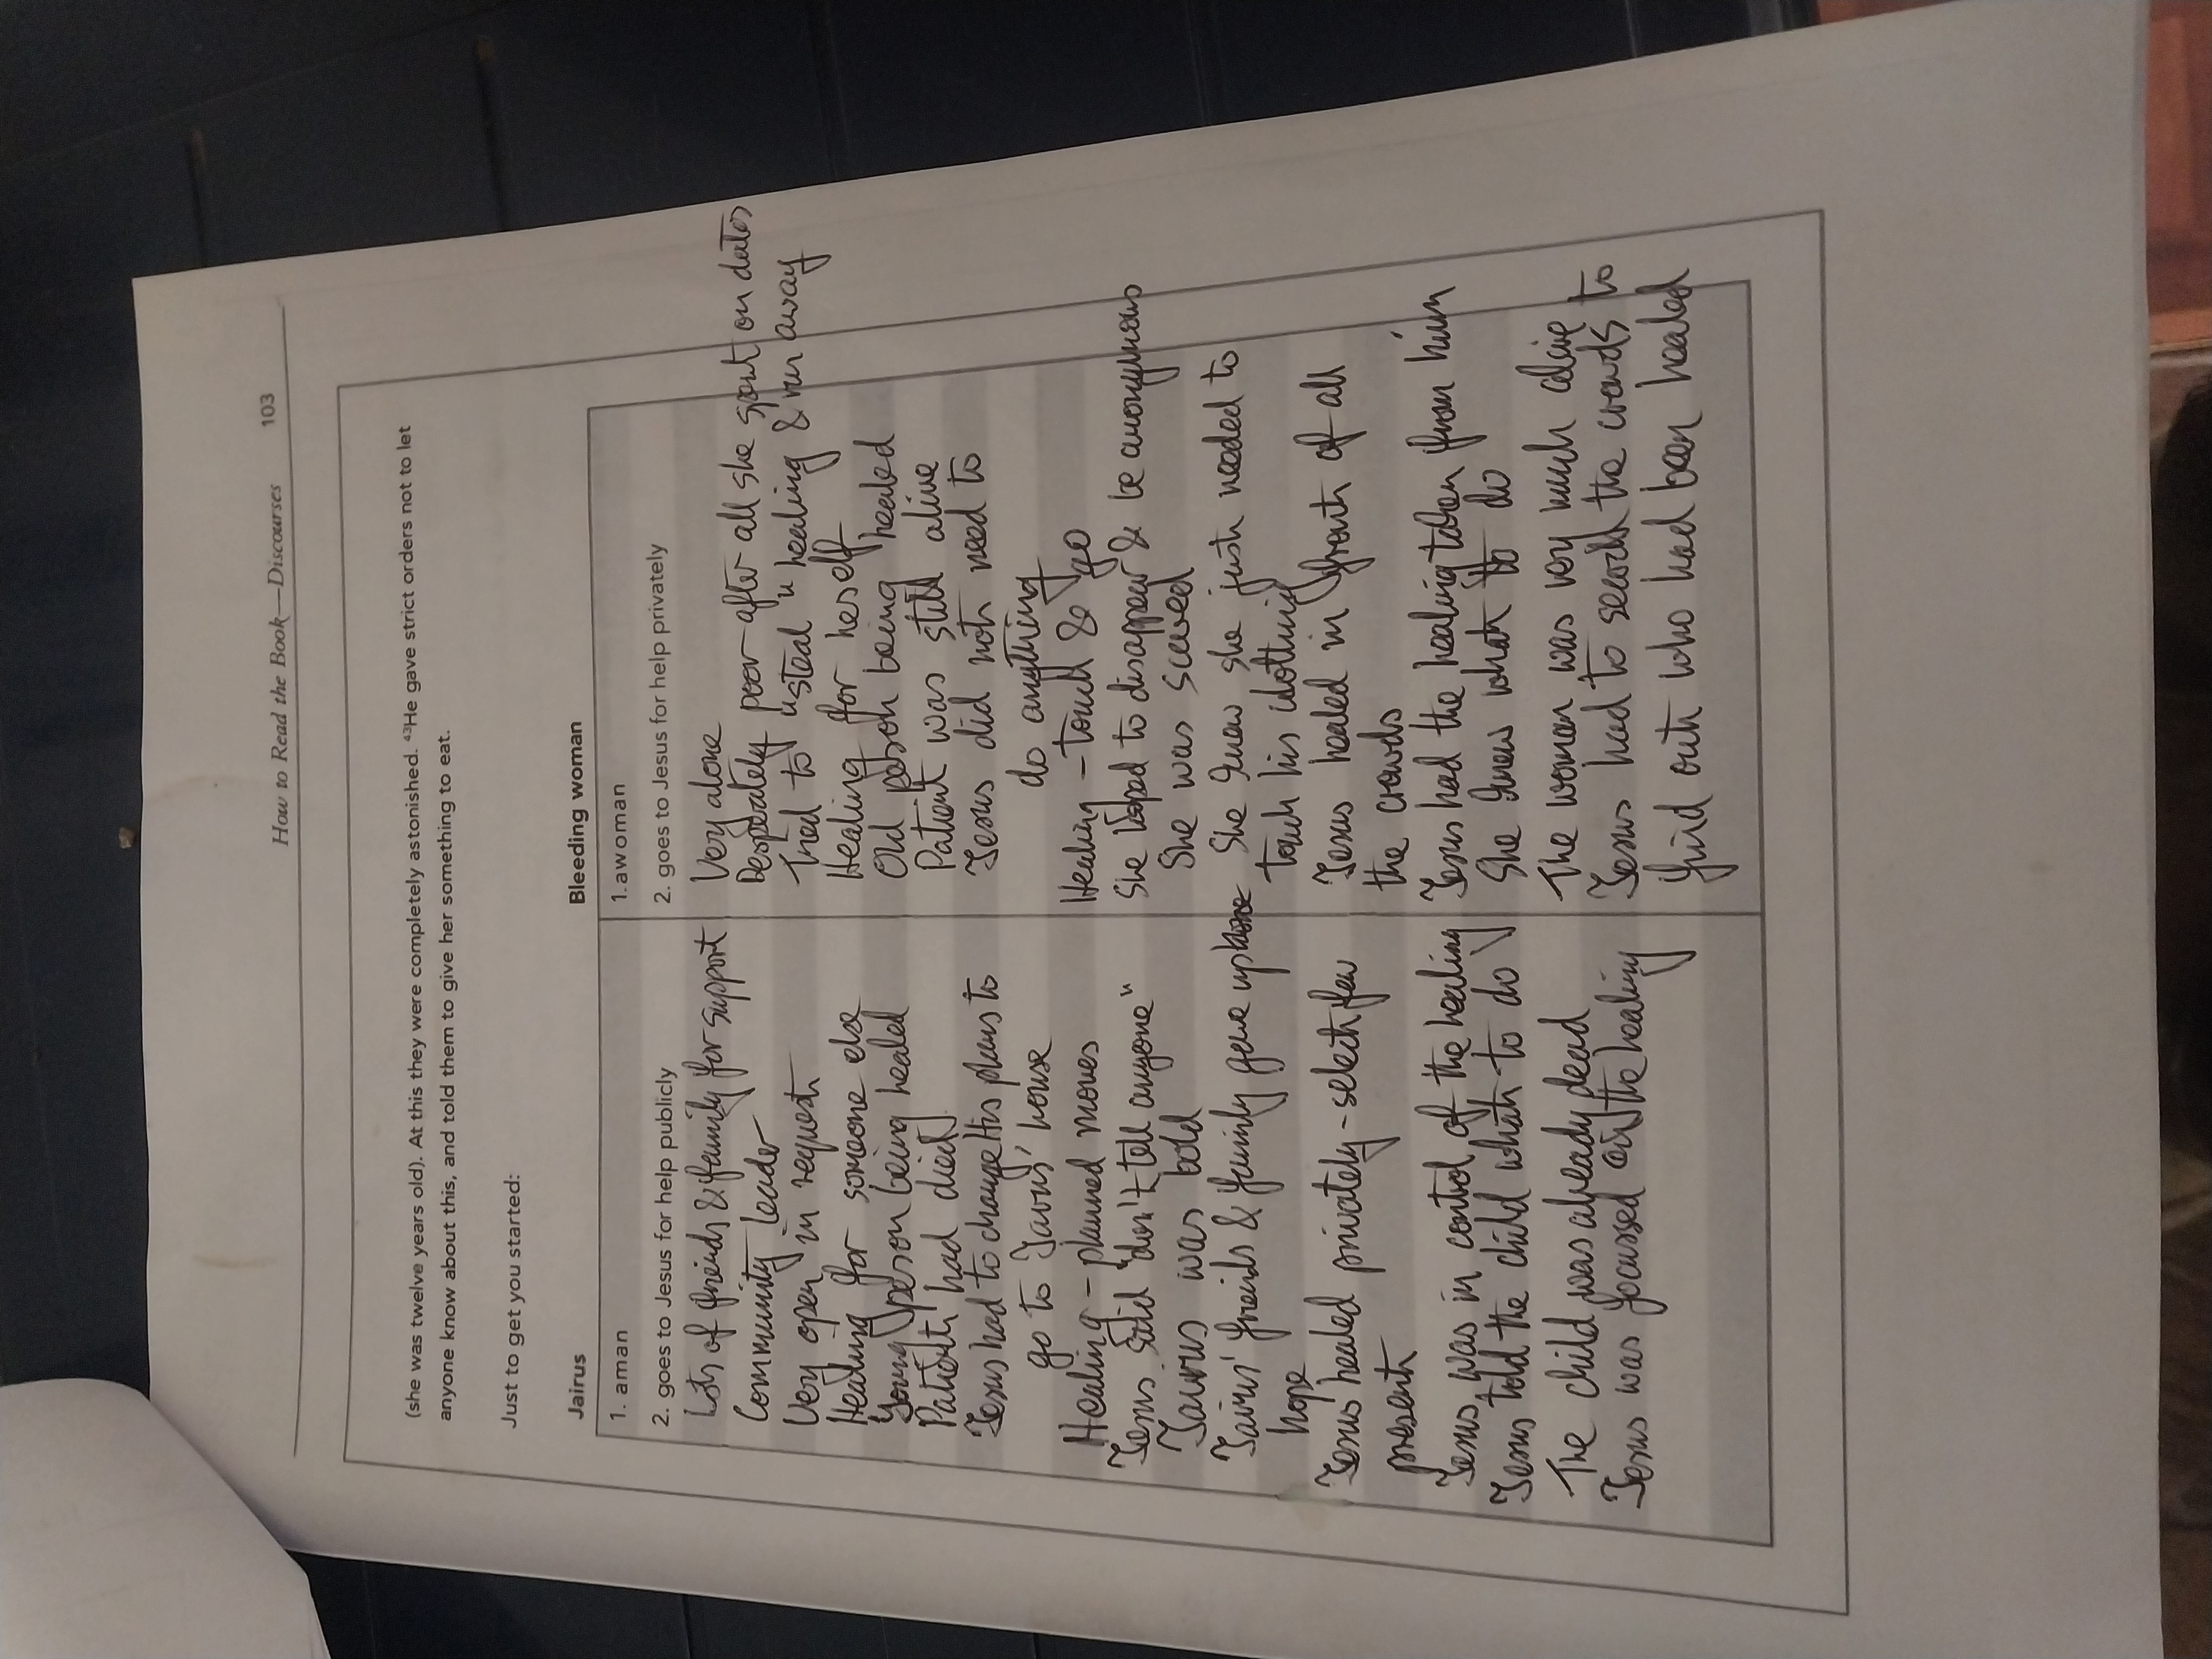 How to Read the Book—Discourses 103
(she was twelve years old). At this they were completely astonished. ⁴³He gave strict orders not to let
anyone know about this, and told them to give her something to eat.
Just to get you started:
Jairus
1. a man
2. goes to Jesus for help publicly
Lots of freinds & family for support
Community leader
Very open in request
Healing for someone else
Young person being healed
Patient had died
Jesus had to change His plans to
go to Jairus' house
Healing - planned moves
Jesus said "don't tell anyone"
Jairus was bold
Jairus' freinds & family gave up
hope
Jesus healed privately - select few
present
Jesus was in control of the healing
Jesus told the child what to do
The child was already dead
Jesus was focussed on the healing
Bleeding woman
1. a woman
2. goes to Jesus for help privately
Very alone
Desperately poor after all she spent on
Tried to "steal" healing & run away
Healing for herself
Old person being healed
Patient was still alive
Jesus did not need to
do anything
Healing - touch & go
She hoped to disappear & be anonymous
She was scared
She knew she just needed to
touch his clothing
Jesus healed in front of all
the crowds
Jesus had the healing taken from him
She knew what to do
The woman was very much alive
Jesus had to search the crowds to
find out who had been healed